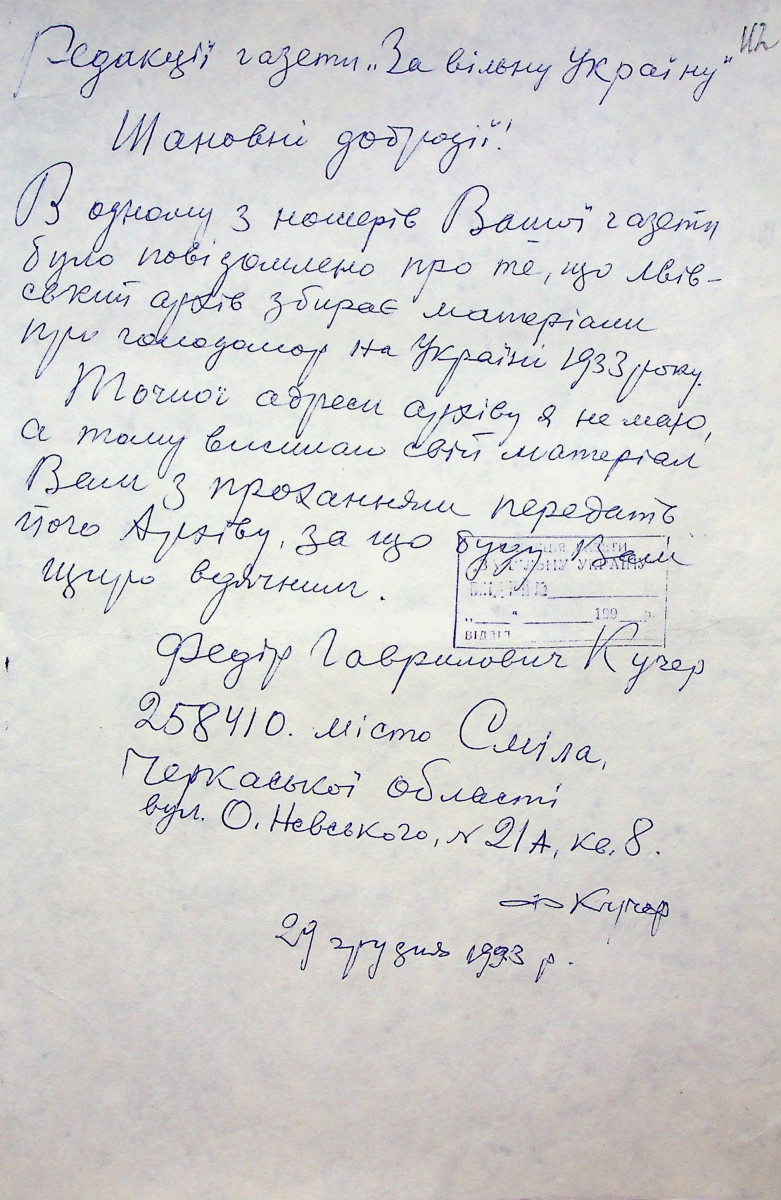 112
Редакції газети „За вільну Україну"
Шановні добродії!
В одному з номерів Вашої газети
було повідомлено про те, що Львів-
ський архів збирає матеріали
про голодомор на Україні 1933 року.
Точної адреси архіву я не маю,
а тому висилаю свій матеріал
Вам з проханням передать
його Архіву, за що буду Вам
щиро вдячним.
ГАЗЕТИ
„ЗА ВІЛЬНУ УКРАЇНУ"
„___" ______ 199__ р.
ВІДДІЛ
Федір Гаврилович Кучер
258410. місто Сміла,
Черкаської області
вул. О. Невського, № 21А, кв. 8.
Кучер
29 грудня 1993 р.